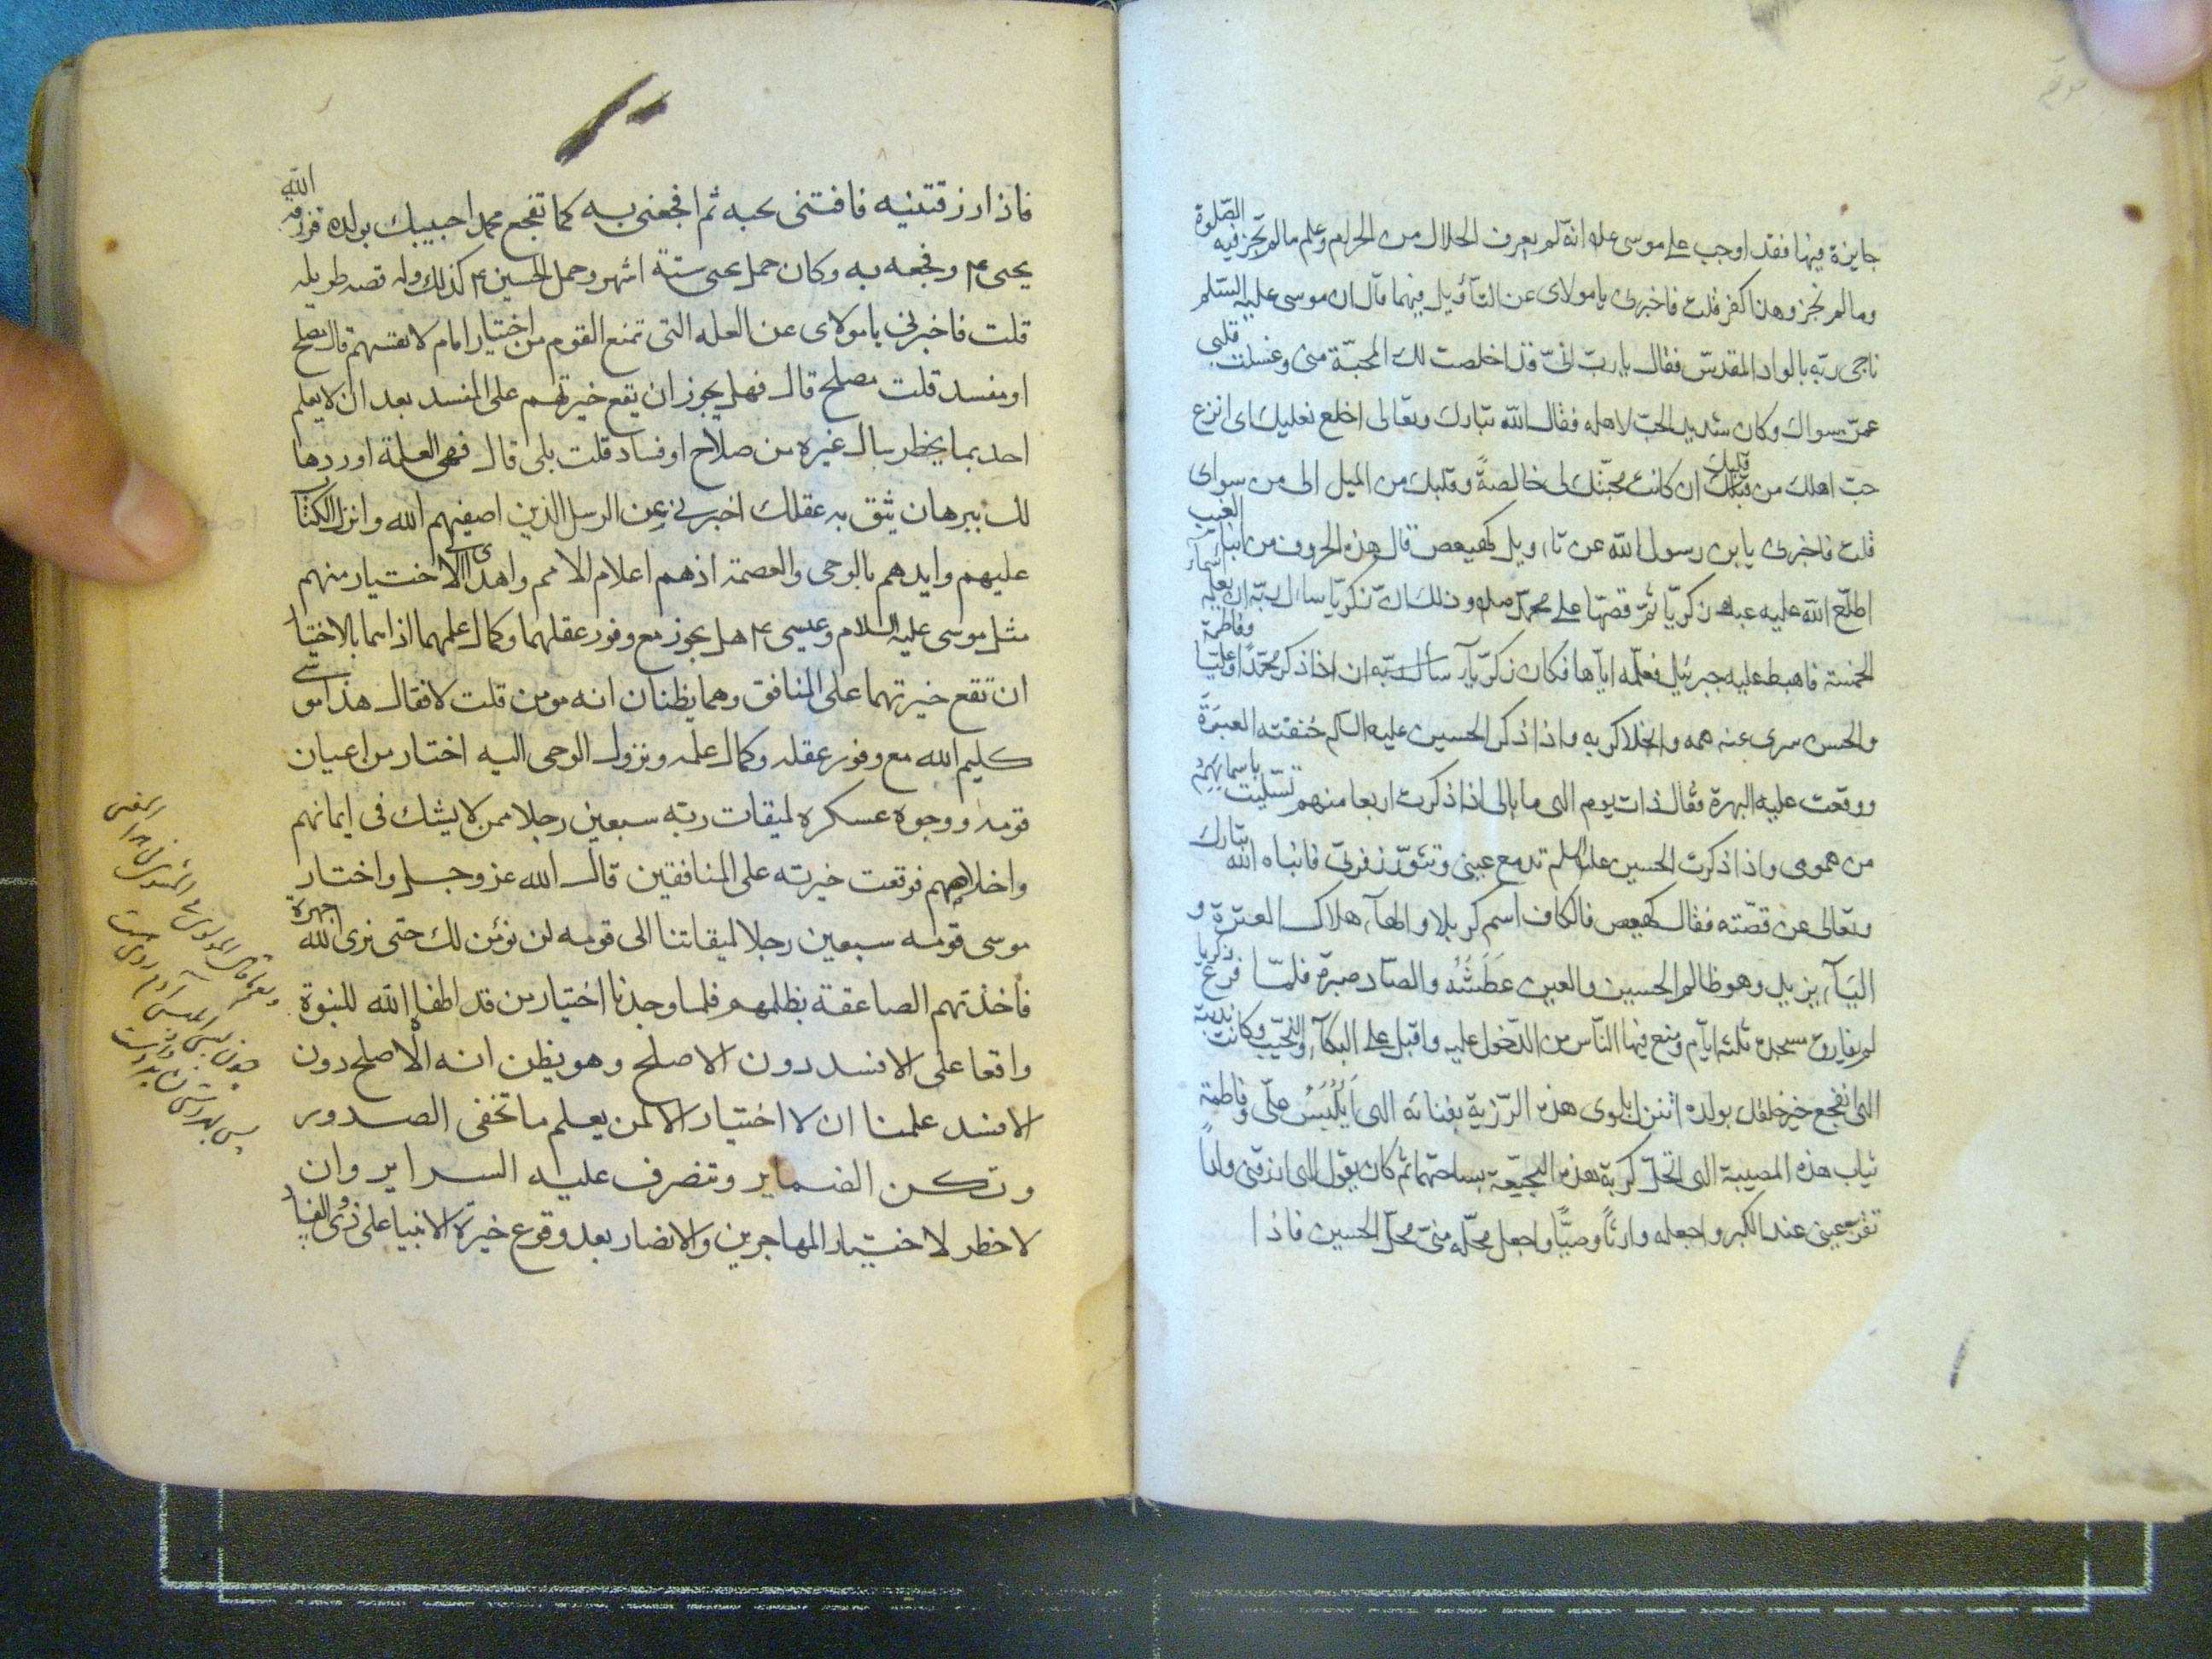 جايزة فيها فقد اوجب على موسى عليه انه لم يعرف الحلال من الحرام وعلم ما لم تجز فيه الصلوة
وما لم تجز وهذا كفر قلت فاخبرنى يا مولاى عن التأويل فيهما قال ان موسى عليه السلم
ناجى ربه بالواد المقدس فقال يا رب انى قد اخلصت لك المحبة منى وغسلت قلبى
عمن سواك وكان شديد الحب لاهله فقال الله تبارك وتعالى اخلع نعليك اى انزع
حب اهلك من قلبك ان كانت محبتك لى خالصة وقلبك من الميل الى من سواى
قلت فاخبرنى يا بن رسول الله عن تاويل كهيعص قال هذه الحروف من انباء الغيب
اطلع الله عليه عبده زكريا ثم قصها على محمد صله وذلك ان زكريا سال ربه ان يعلمه اسماء
الخمسة فاهبط عليه جبرئيل فعلمه اياها فكان زكريا سأل ربه ان اذا ذكر محمدا وعليا وفاطمة
والحسن سرى عنه همه وانجلا كربه واذا ذكر الحسين عليه السلم خنقته العبرة
ووقعت عليه البهرة فقال ذات يوم الهى ما بالى اذا ذكرت اربعا منهم تسليت باسمائهم
من همومى واذا ذكرت الحسين عليه السلم تدمع عينى وتثور زفرتى فانباه الله تبارك
وتعالى عن قصته فقال كهيعص فالكاف اسم كربلا والهآء هلاك العترة و
اليآء يزيد وهو ظالم الحسين والعين عطشه والصاد صبره فلما فرغ زكريا
لم يفارق مسجده ثلثة ايام ومنع فيها الناس من الدخول عليه واقبل على البكآء والنحيب وكانت ندبته
الهى اتفجع خير خلقك بولده اتنزل بلوى هذه الرزية بفنائه الهى اتلبس على وفاطمة
ثياب هذه المصيبة الهى اتحل كربة هذه الفجيعة بساحتهما ثم كان يقول الهى ارزقنى ولدا
تقر به عينى عند الكبر واجعله وارثا وصيا واجعل محله منى محل الحسين فاذا
فاذا رزقتنيه فافتنى بحبه ثم افجعنى به كما تفجع محمدا حبيبك بولده فرزقه الله
يحيى ع وفجعه به وكان حمل يحيى ستة اشهر وحمل الحسين ع كذلك وله قصه طويله
قلت فاخبرنى يا مولاى عن العله التى تمنع القوم من اختيار امام لانفسهم قال مصلح
او مفسد قلت مصلح قال فهل يجوز ان يقع خيرتهم على المفسد بعد ان لا يعلم
احد بما يخطر ببال غيره من صلاح او فساد قلت بلى قال فهى العلة اوردها
لك ببرهان يثق به عقلك اخبرنى عن الرسل الذين اصفيهم الله وانزل الكتاب
عليهم وايدهم بالوحى والعصمة اذهم اعلام الامم واهدى الى الاختيار منهم
مثل موسى عليه السلام وعيسى ع هل يجوز مع وفور عقلهما وكمال علمهما اذا هما بالاختيار
ان تقع خيرتهما على المنافق وهما يظنان انه مومن قلت لا فقال هذا موسى
كليم الله مع وفور عقله وكمال علمه ونزول الوحى اليه اختار من اعيان
قومه ووجوه عسكره لميقات ربه سبعين رجلا ممن لا يشك فى ايمانهم
واخلاصهم فوقعت خيرته على المنافقين قال الله عز وجل واختار
موسى قومه سبعين رجلا لميقاتنا الى قومه لن نؤمن لك حتى نرى الله جهرة
فاخذتهم الصاعقة بظلمهم فلما وجدنا اختيار من قد اصطفاه الله للنبوة
واقعا على الافسد دون الاصلح وهو يظن انه الاصلح دون
الافسد علمنا ان لا اختيار الا لمن يعلم ما تخفى الصدور
وتكن الضماير وتنصرف عليه السراير وان
لا خطر لاختيار المهاجرين والانصار بعد وقوع خيرة الانبيا على ذوى الفساد
چون بسى ابليس آدم روى هست
پس بهر دستى نشايد داد دست